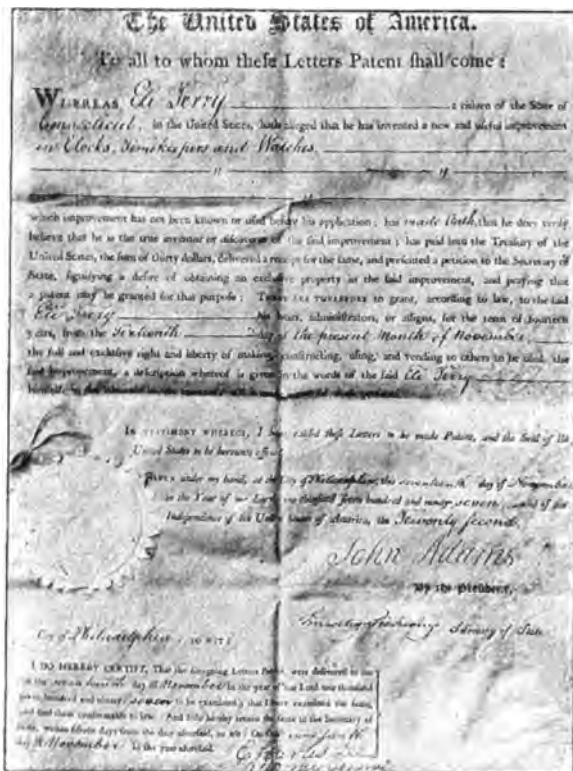 The United States of America.
To all to whom theſe Letters Patent ſhall come:
WHEREAS Eli Terry a citizen of the State of
Connecticut, in the United States, hath alleged that he has invented a new and uſeful improvement
in Clocks, Timekeepers and Watches.
which improvement has not been known or uſed before his application; has made Oath, that he does verily
believe that he is the true inventor or diſcoverer of the ſaid improvement; has paid into the Treaſury of the
United States, the ſum of thirty dollars, delivered a receipt for the ſame, and preſented a petition to the Secretary of
State, ſignifying a deſire of obtaining an excluſive property in the ſaid improvement, and praying that
a patent may be granted for that purpoſe: THESE ARE THEREFORE to grant, according to law, to the ſaid
Eli Terry his heirs, adminiſtrators, or aſſigns, for the term of fourteen
years, from the Sixteenth Day of the present Month of November
the full and excluſive right and liberty of making, conſtructing, uſing, and vending to others to be uſed, the
ſaid improvement, a deſcription whereof is given in the words of the ſaid Eli Terry
IN TESTIMONY WHEREOF, I have cauſed theſe Letters to be made Patent, and the Seal of the
United States to be hereunto affixed.
GIVEN under my hand, at the City of Philadelphia, this seventeenth day of November
in the Year of our Lord, one thouſand ſeven hundred and ninety seven and of the
Independence of the United States of America, the Twenty second.
John Adams
By the Preſident,
Timothy Pickering Secretary of State
City of Philadelphia, TO WIT:
I DO HEREBY CERTIFY, That the foregoing Letters Patent, were delivered to me
on the seventeenth day of November in the year of our Lord one thouſand
ſeven hundred and ninety seven to be examined; that I have examined the ſame,
and find them conformable to law: And I do hereby return the ſame to the Secretary of
State, within fifteen days from the date aforeſaid, to wit: On this
day of November in the year aforeſaid.
Charles Lee